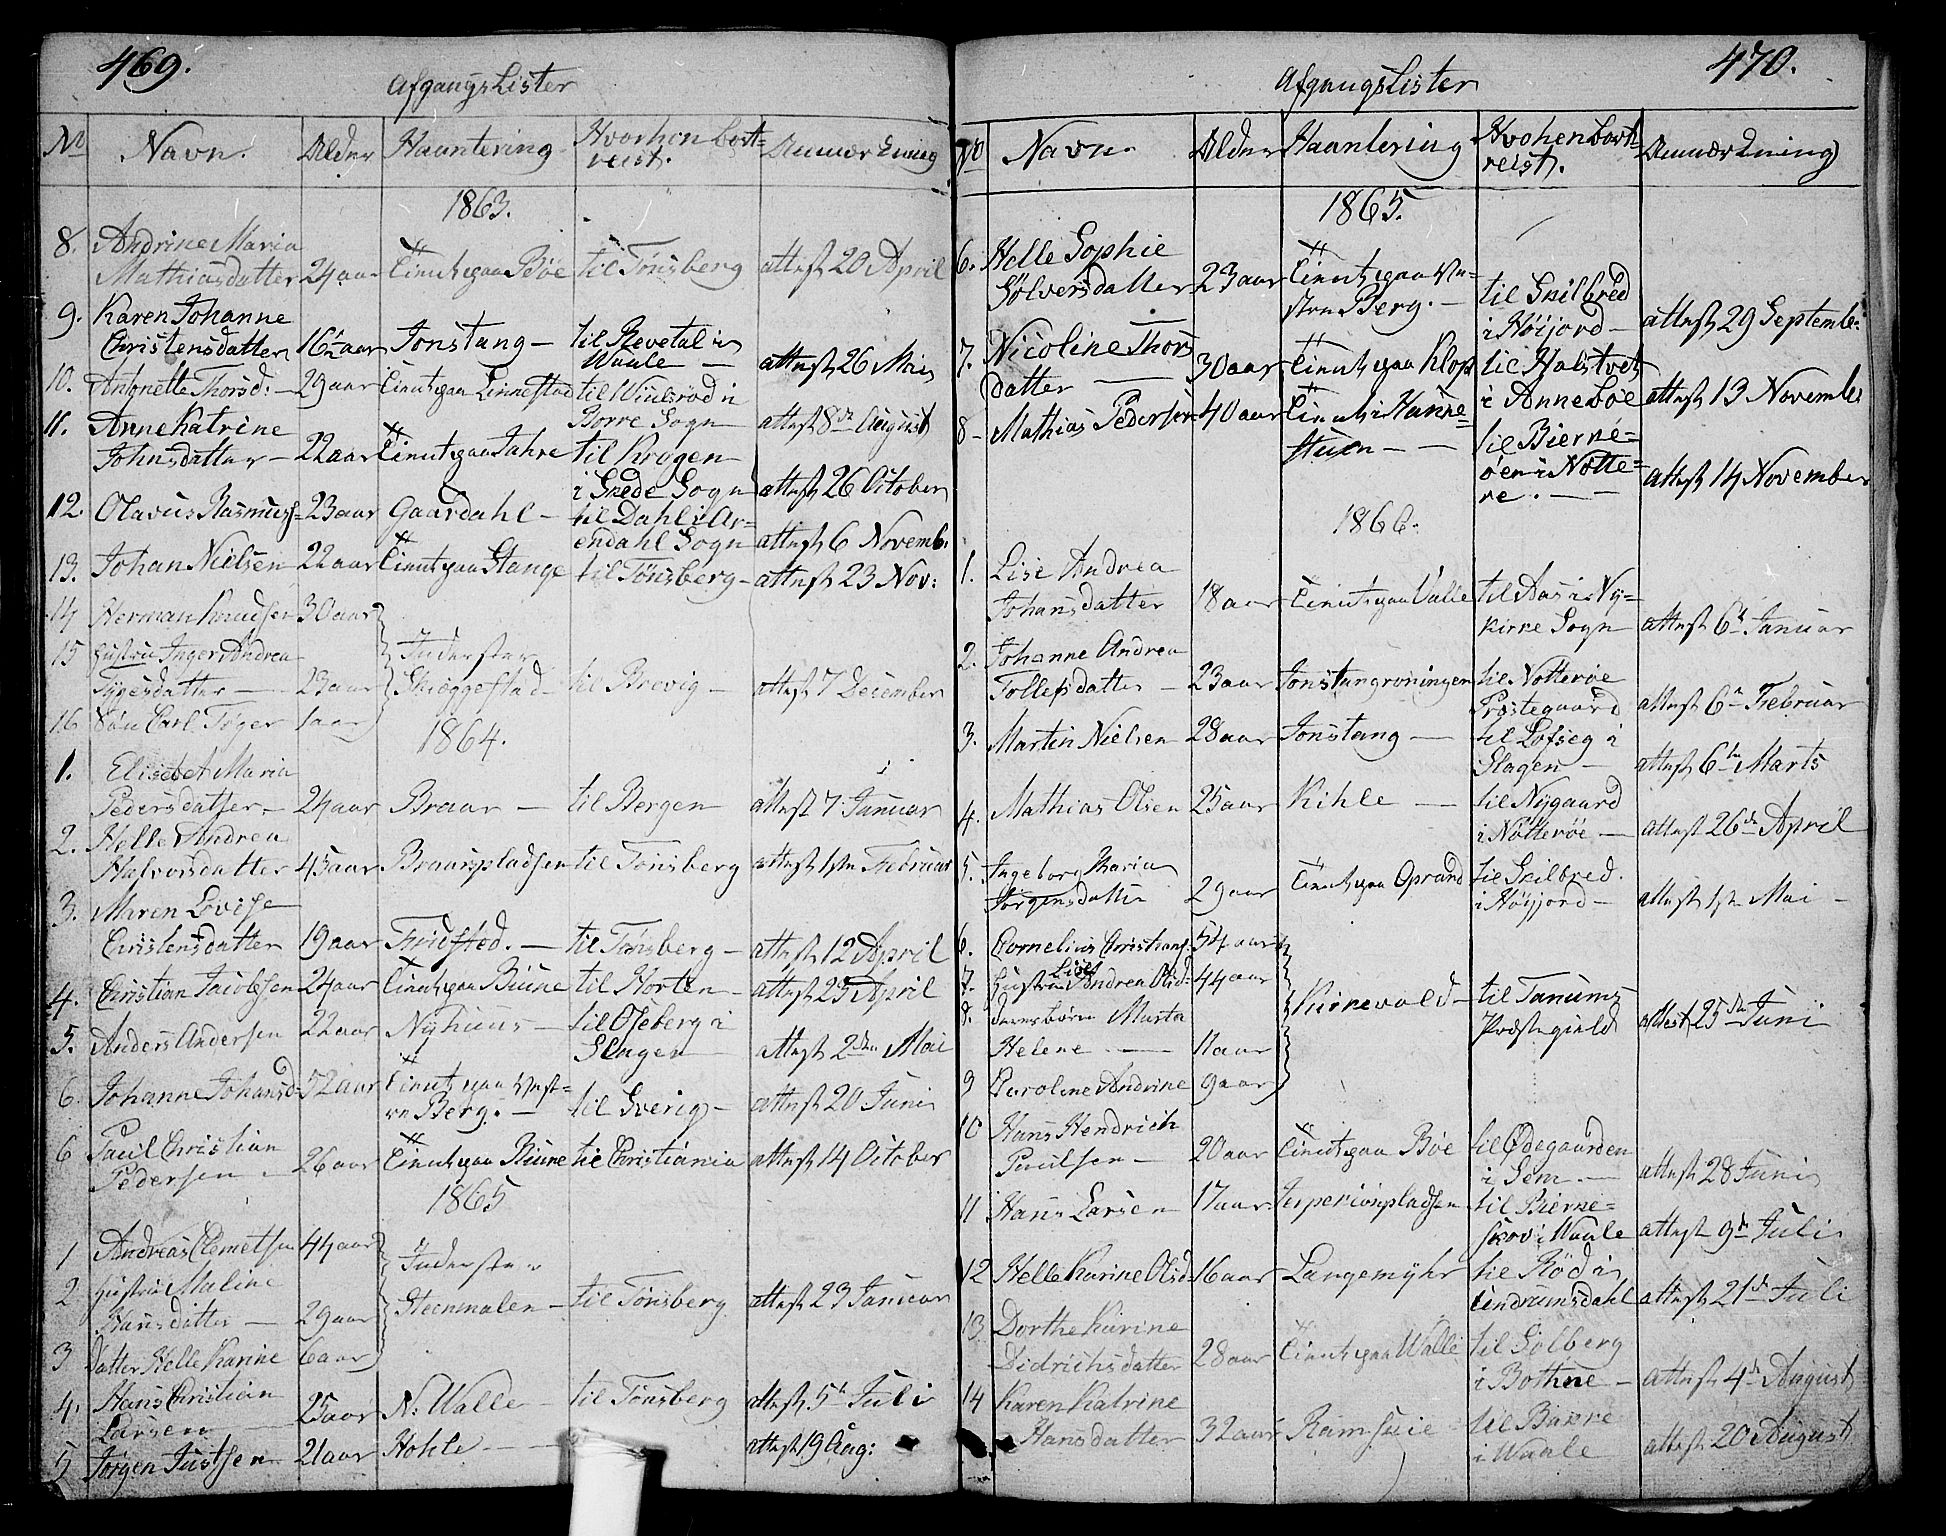 469.
Afgangslister
No Navn. Alder Haantering Hvorhen bort=
reist. Anmærkning
1863.
8. Andrine Maria
Mathiasdatter 24 aar Tienest paa Bøe til Tønsberg attest 20 April
9. Karen Johanne
Christensdatter 16½ aar Jonstang - til Revetal i
Vaale - attest 26 Mai
10. Antonette Thorsd: - 29 aar Tienest paa Linnestad til
Borre Sogn attest 8de August
11. Anne Katrine
Johnsdatter - 22 aar Tienest paa Jahre til Krogen
i Skede Sogn attest 26 October
12. Olavus Rasmuss: 23 aar Gaardahl - til Dahl i Ar=
endahl Sogn attest 6 Novemb:
13. Johan Nielsen 22 aar Tienest paa Stange til Tønsberg - attest 23 Nov:
14 Herman Knudsen 30 aar
15 Hustru Inger Andrea Inderster
datter - 23 aar Skoggestad - til Brevig - attest 7 December
16 Søn Carl Teger 1 aar
1864.
1. Elisebet Maria
Pedersdatter - 24 aar Braar - til Bergen attest 7 Januar
2. Helle Andrea
Halvorsdatter 45 aar Braarspladsen til Tønsberg attest 1ste Februar
3. Maren Lovise
Christensdatter 19 aar - til Tønsberg - attest 12 April
4. Christian Jacobsen 24 aar Tienest paa Biune til Horten - attest 25 April
5. Anders Andersen 22 aar Nyhuus - til Oseberg i
Slagen attest 2den Mai
6. Johanne Johansd: 52 aar Tienest paa Vest=
re Berg. - til Sverig - attest 20 Juni
6 Paul Christian
Pedersen - 26 aar Tienest paa Biune til Christiania attest 14 October
1865
1 Andreas Clemetsen 44 aar Inderster
2 Hustru Maline
Hansdatter - 29 aar Steenmalen - til Tønsberg attest 23 Januar
3 Datter Helle Karine 6 aar
4. Hans Christian
Larsen 25 aar N: Valle - til Tønsberg attest 5t Juli
5 Jørgen Justsen - 21 aar Hohle - attest 19 Aug:
470.
Afgangslister
No Navn. Alder Haantering Hvohen bort=
reist. Anmærkning
1865.
6. Helle Sophie
Sølversdatter 23 aar Tienest paa Ve=
stre Berg. - til Skilbred
i Høijord - attest 29 Septembe:
7. Nicoline Thors
datter - 30 aar Tienest paa Klop til Holstvet
i Anneboe attest 13 November
8 - Mathias Pedersen 40 aar Tienest i Hanne=
stuen - til Bierke=
øen i Nøtte=
røe. - attest 14 November
1866.
1. Lise Andrea
Johansdatter 18 aar Tienest paa Valle til Aas i Ny=
kirke Sogn attest 6t Januar
2. Johanne Andrea
Tollefsdatter - 23 aar Jonstangroningen til Nøtterøe
Præstegaard attest 6te Februar
3. Martin Nielsen 28 aar Jonstang - til Løfseg i
Slagen - attest 6te Marts
4. Mathias Olsen 25 aar Kihle - til Nygaard
i Nøtterøe - attest 26de April
5. Ingeborg Maria
Jørgensdatter 29 aar Tienest paa Oprand til Skilbred.
i Høijord - attest 1ste Mai -
6. Cornelius Christians: 54 aar
7. Hustru Lise Andrea Olsd: 44 aar
8. deres børn Marta Kirkevold - til Tanums
Præstegield attest 25de Juni
Helene - 11 aar
9 Caroline Andrine 9 aar
10 Hans Hendrich
Paulsen - 20 aar Tienest paa Bøe til Ødegaarden
i Sem - attest 28 Juni
11 Hans Larsen 17 aar Jespersionpladsen til Bierke=
skov i Vaale attest 9de Juli
12 Helle Karine Olsd: 16 aar Langemyhr til Rød i
Undrumsdahl attest 21de Juli
13 Dorthe Karine
Didrichsdatter 28 aar Tienest paa Valle til Solberg
i Bothne - attest 4de August
14 Karen Katrine
Hansdatter 32 aar Ramsuie til Bakke
i Vaale attest 20 August